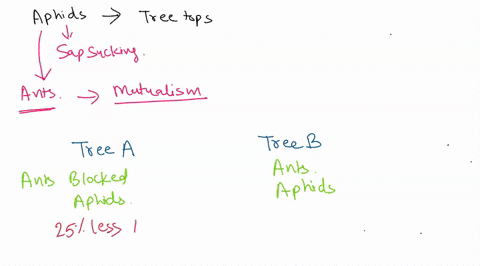 Aphids → Tree tops
Sap sucking.
Ants. → Mutualism
Tree A
Ants Blocked
Aphids.
25% less
Tree B
Ants.
Aphids